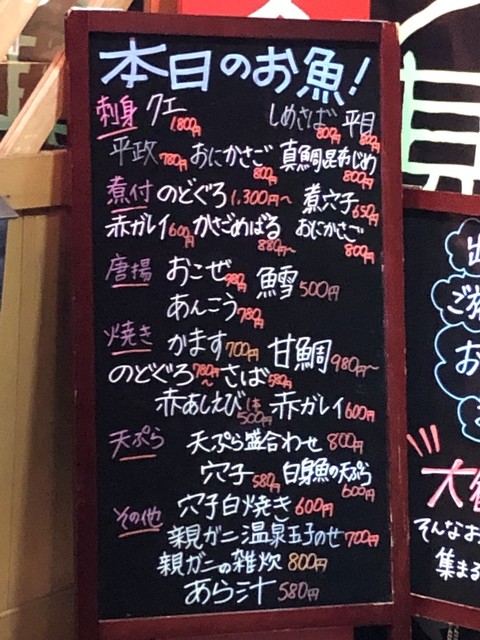 本日のお魚!
刺身 クエ 1,800円 しめさば 800円 平目 800円
平政 780円 おにかさご 800円 真鯛昆布じめ 800円
煮付 のどぐろ 1,300円〜 煮穴子 650円
赤ガレイ 600円 かさごめばる 880円〜 おにかさご 800円
唐揚 おこぜ 980円 鱈 500円
あんこう 780円
焼き かます 700円 甘鯛 980円〜
のどぐろ 780円〜 さば 580円
赤あしえび 1本 500円 赤ガレイ 600円
天ぷら 天ぷら盛合わせ 800円
穴子 580円 白身魚の天ぷら 600円
その他 穴子白焼き 600円
親ガニ温泉玉子のせ 700円
親ガニの雑炊 800円
あら汁 580円
ご
お
大
そんなお
集まる